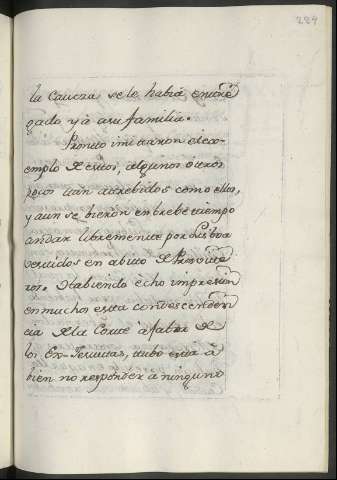 284
la Caveza se le habia entre
gado y â a su familia.
Pronto imitaron el ex-
emplo de estos, algunos otros
pocos tan atrebidos como ellos,
y aun se bieron en brebe tiempo
andar libremente por Lisboa
vestidos en abito de Presvite
ros. Habiendo echo impresion
en muchos esta condescenden
cia de la Corte â fabor de
los Ex-Jesuitas, tubo esta â
bien no responder â ninguno